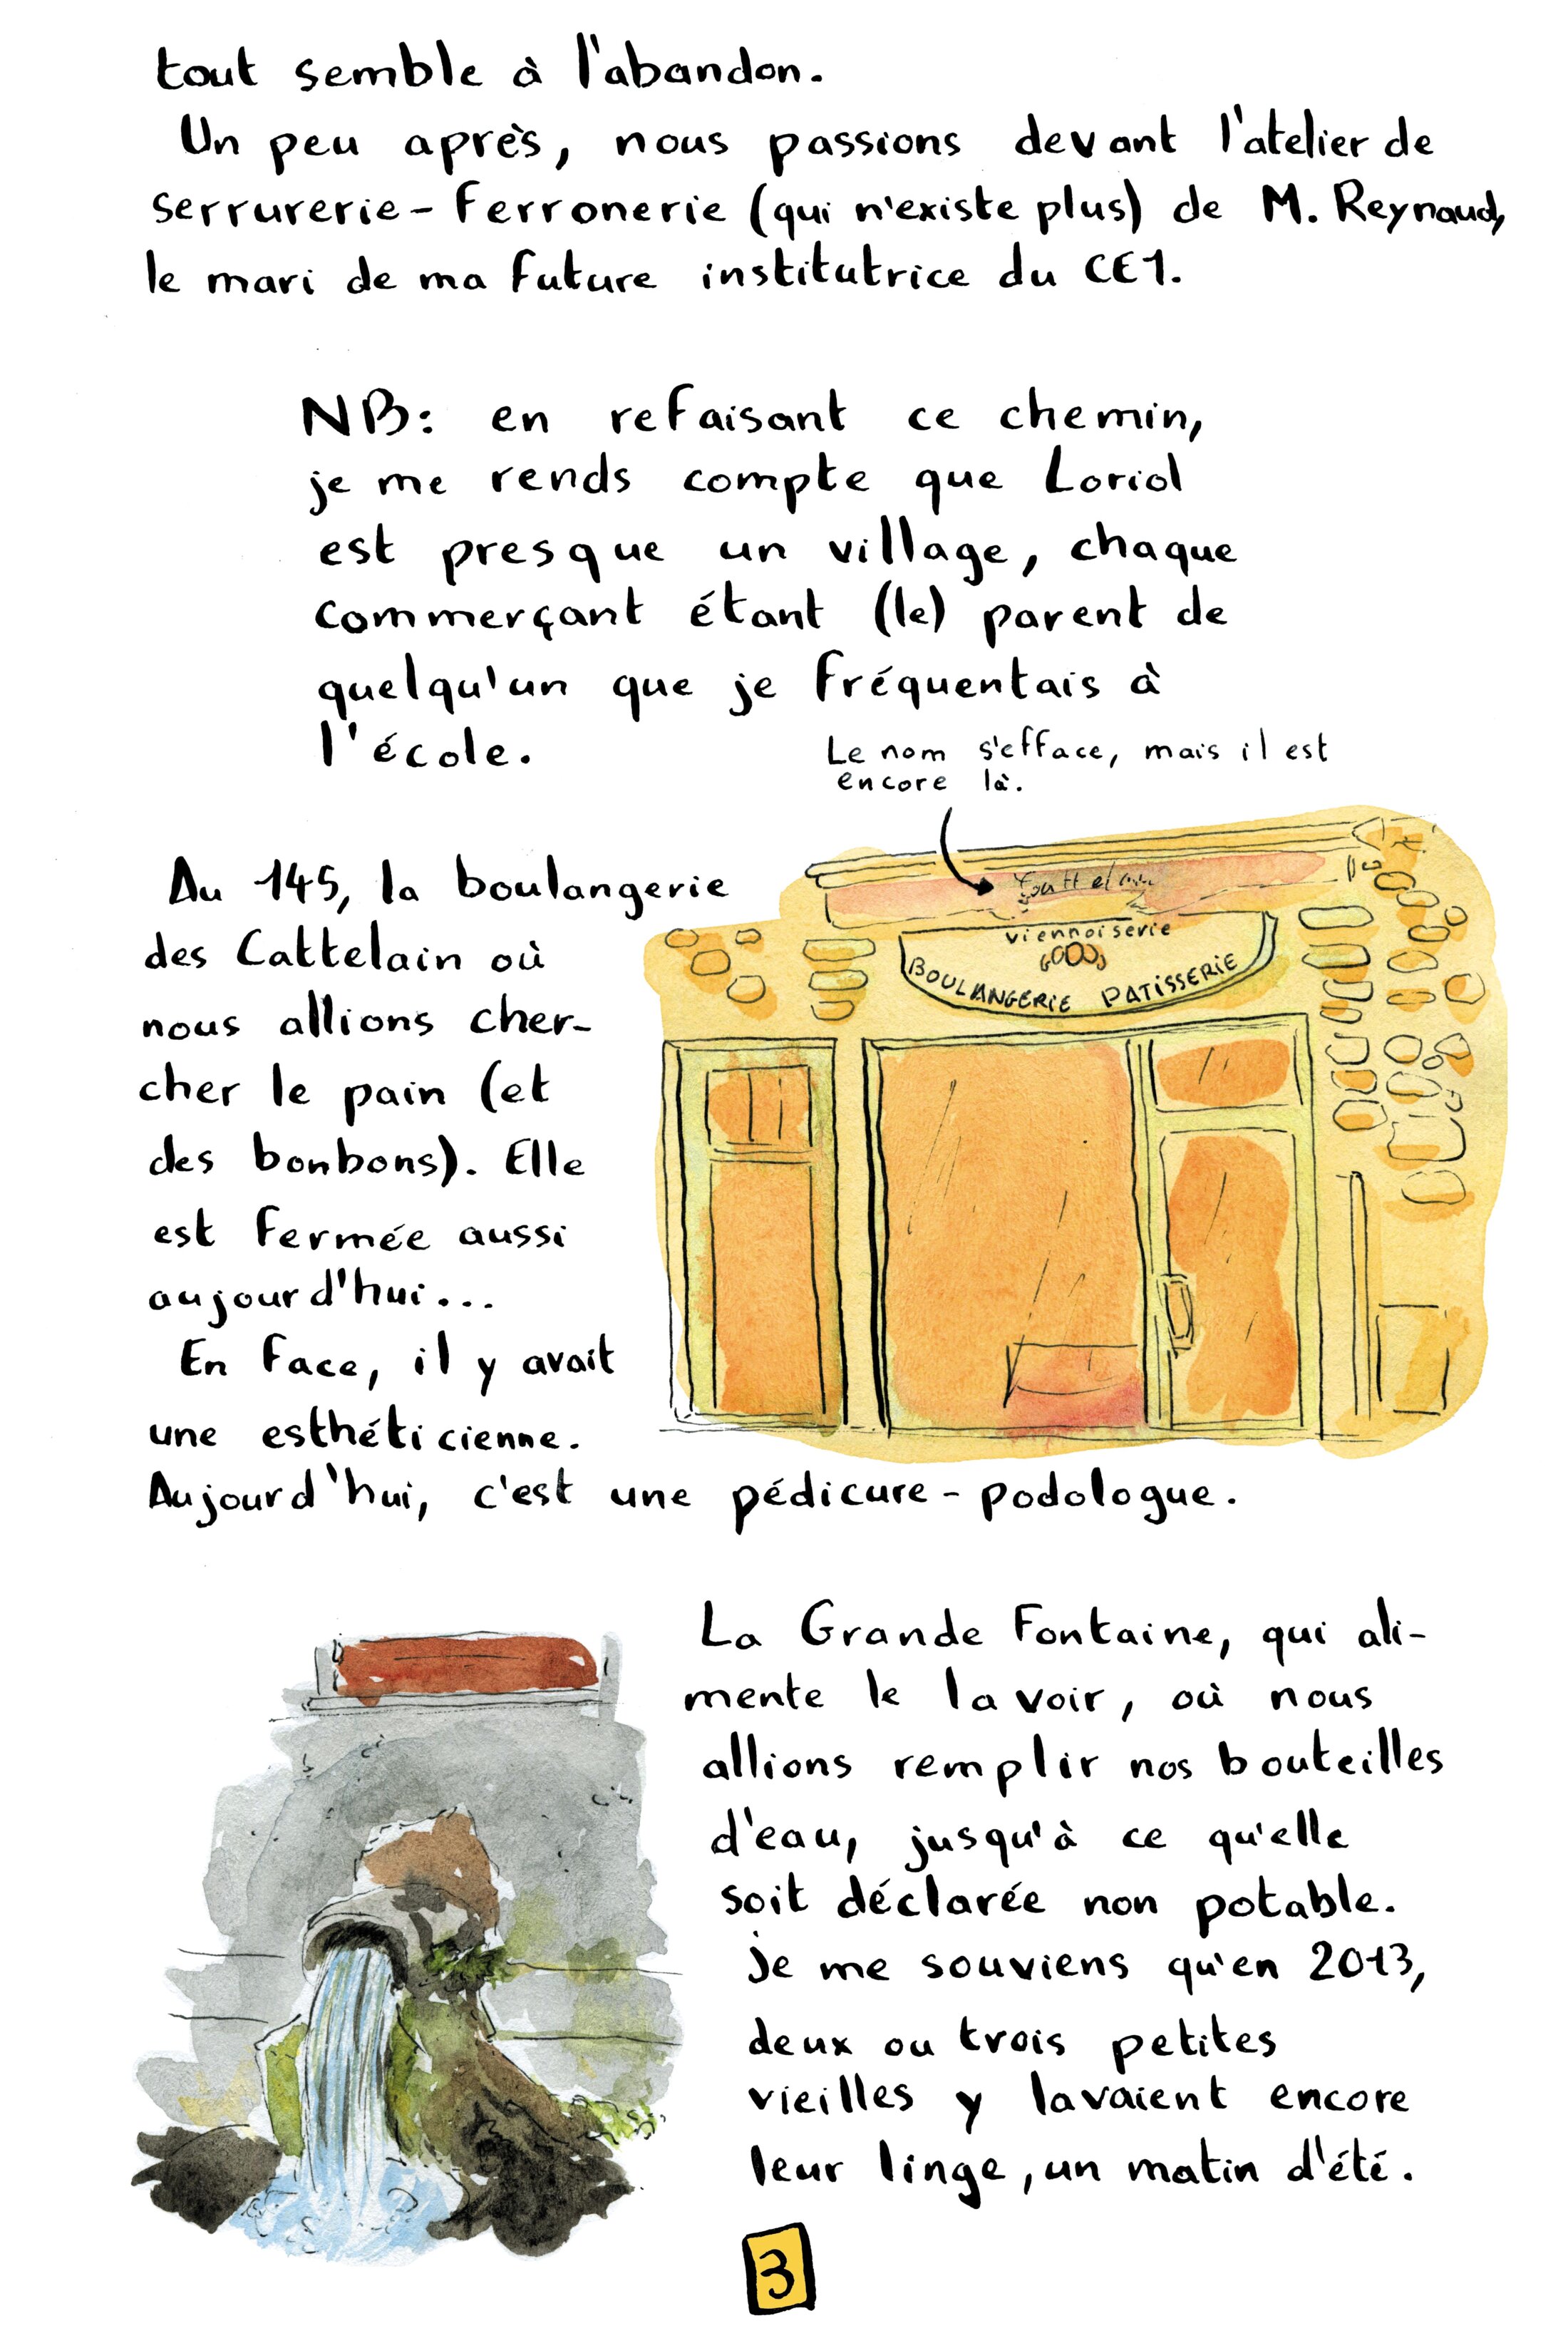 tout semble à l'abandon.
Un peu après, nous passions devant l'atelier de
serrurerie-ferronerie (qui n'existe plus) de M. Reynaud,
le mari de ma future institutrice du CE1.
NB: en refaisant ce chemin,
je me rends compte que Loriol
est presque un village, chaque
commerçant étant (le) parent de
quelqu'un que je fréquentais à
l'école.
Le nom s'efface, mais il est
encore là.
Au 145, la boulangerie
des Cattelain où
nous allions cher-
cher le pain (et
des bonbons). Elle
est fermée aussi
aujourd'hui...
En face, il y avait
une esthéticienne.
Aujourd'hui, c'est une pédicure-podologue.
viennoiserie
BOULANGERIE PATISSERIE
La Grande Fontaine, qui ali-
mente le lavoir, où nous
allions remplir nos bouteilles
d'eau, jusqu'à ce qu'elle
soit déclarée non potable.
je me souviens qu'en 2013,
deux ou trois petites
vieilles y lavaient encore
leur linge, un matin d'été.
3